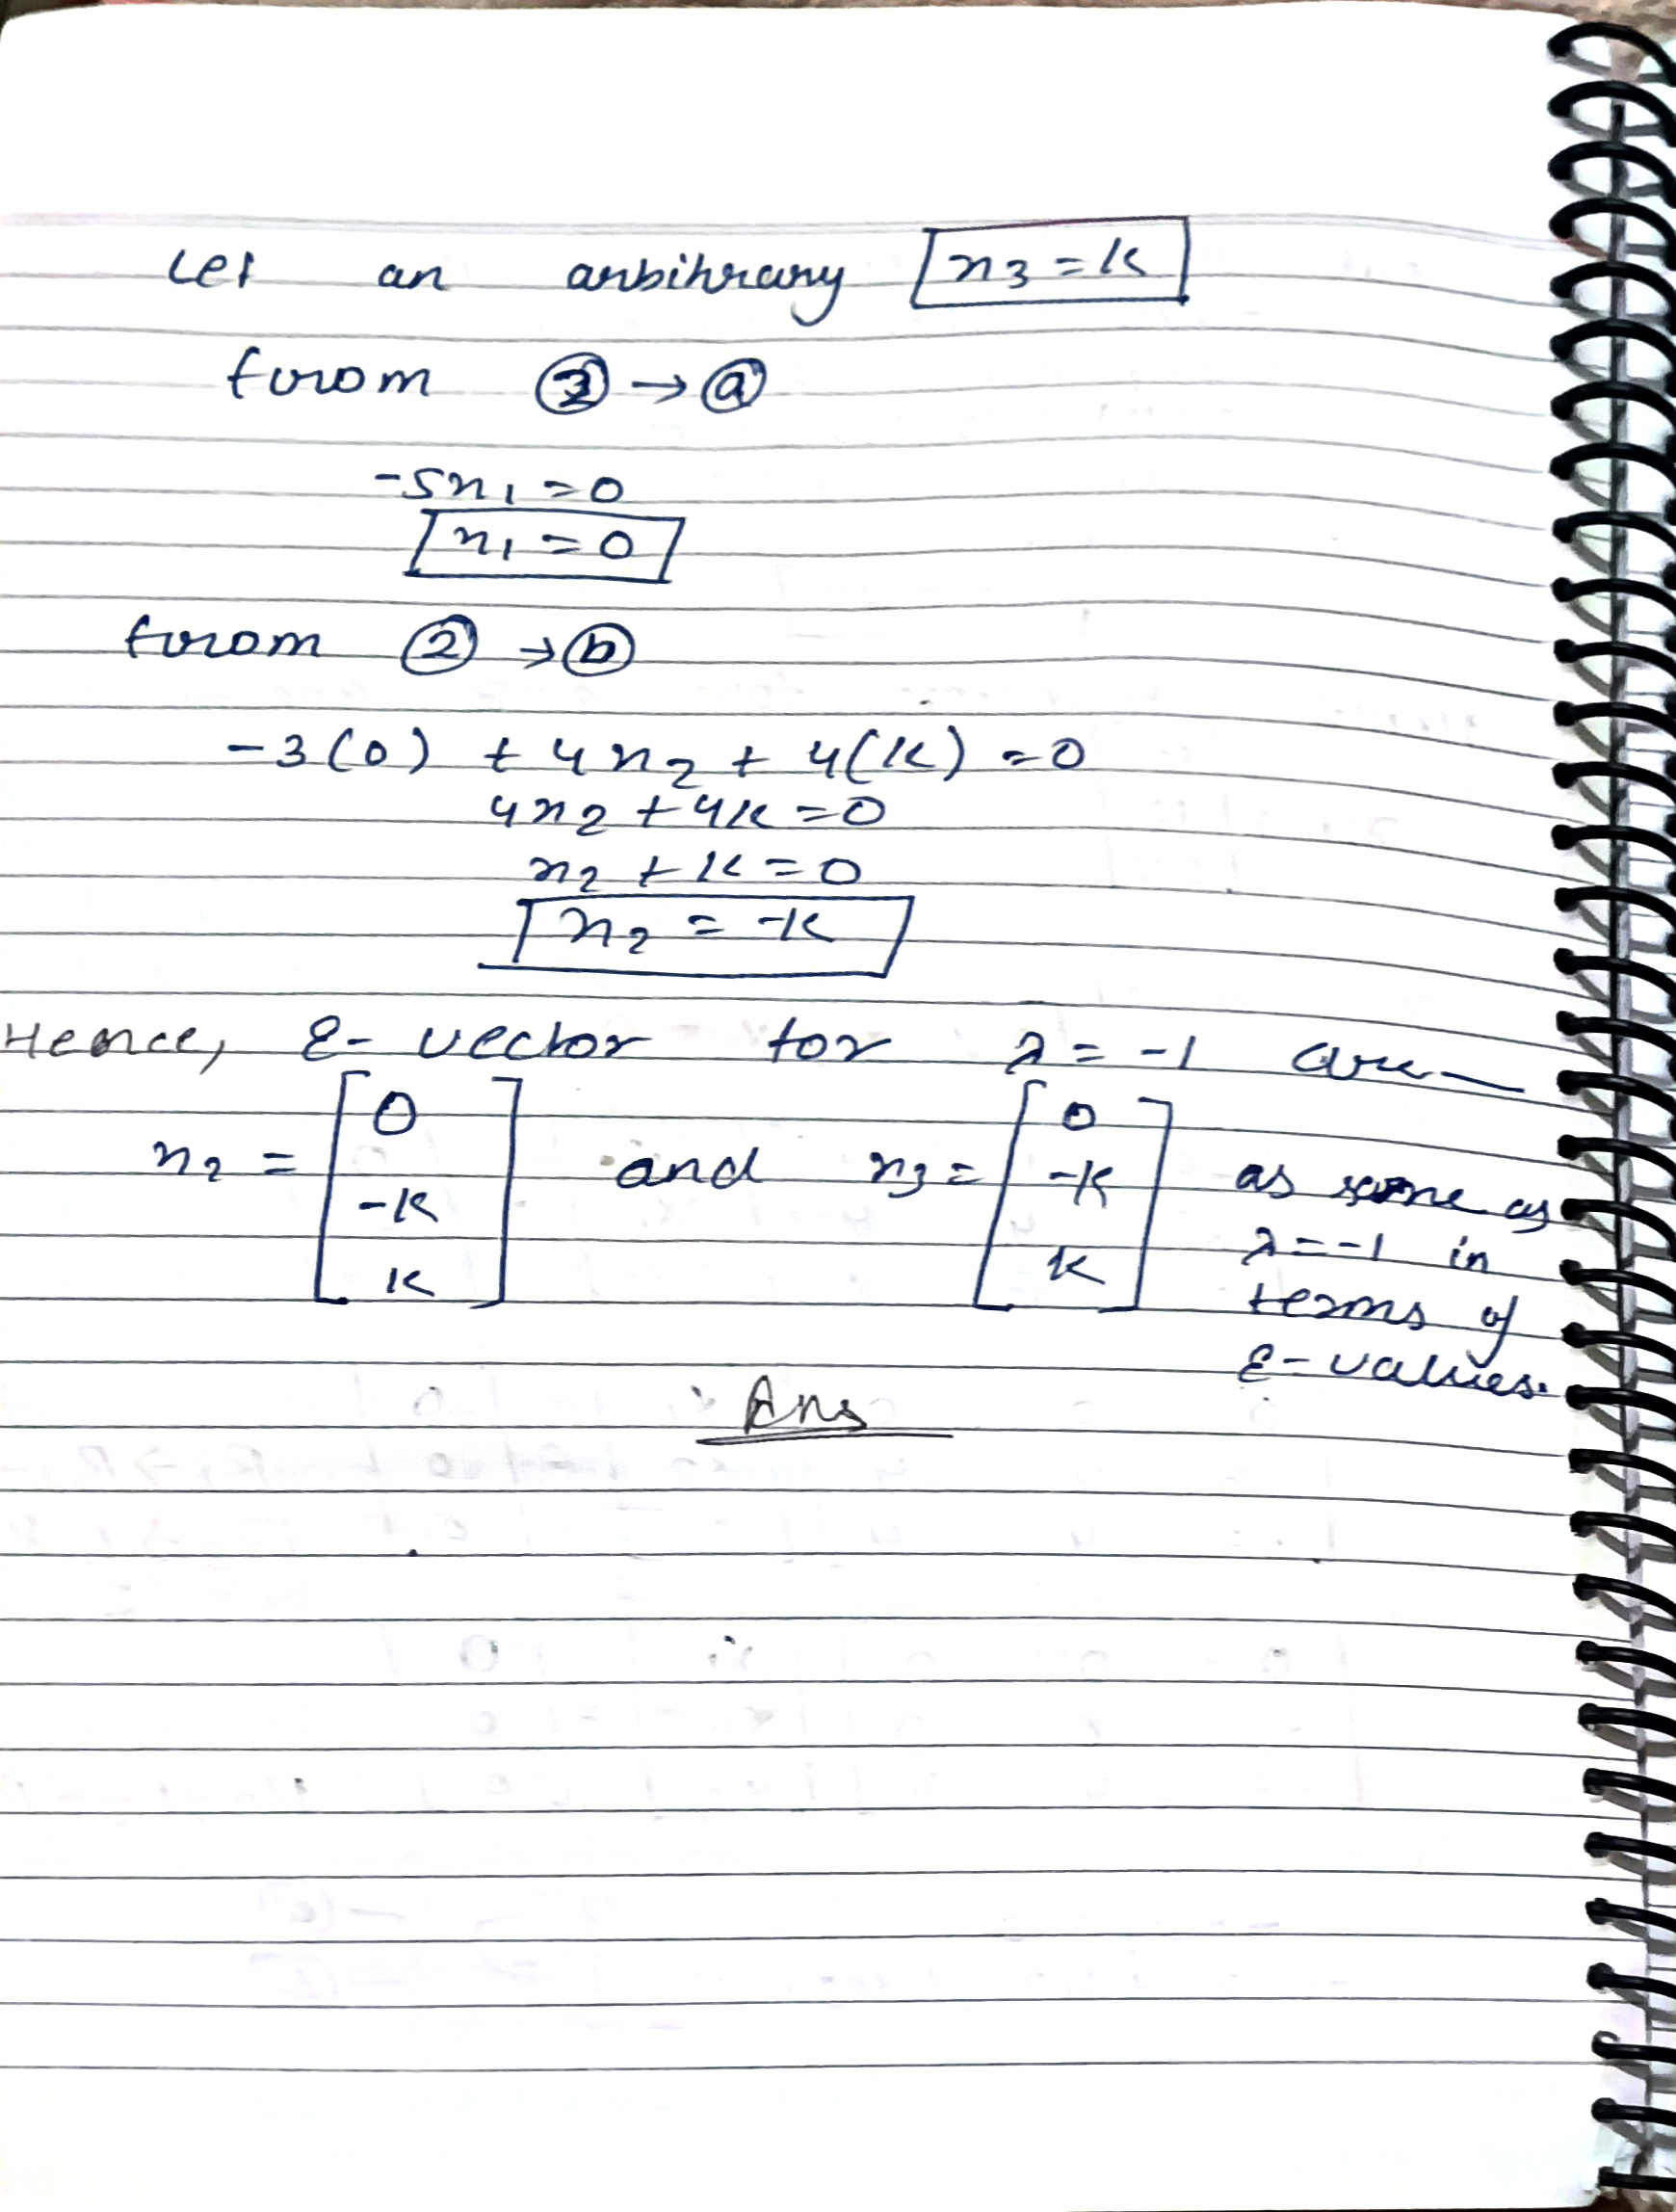 Let an arbitrary x3 = k
from ② → ⓐ
-5x1 = 0
x1 = 0
from ② → ⓑ
-3(0) + 4x2 + 4(k) = 0
4x2 + 4k = 0
x2 + k = 0
x2 = -k
Hence, E-vector for λ = -1 are
x2 = [0 -k k] and x3 = [0 -k k] as same as
λ = -1 in
terms of
E-values.
Ans